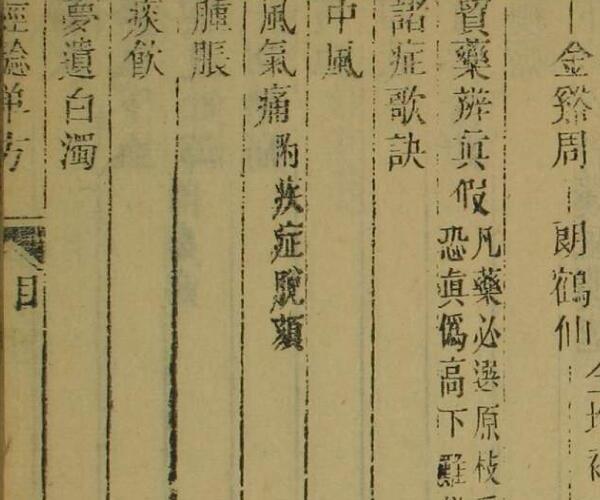 金谿周　朗鶴仙
貿藥辨真假
凡藥必選原枝
恐真偽高下難
諸症歌訣
中風
風氣痛附疾症脫頦
腫脹
痰飲
夢遺白濁
經驗单方　目